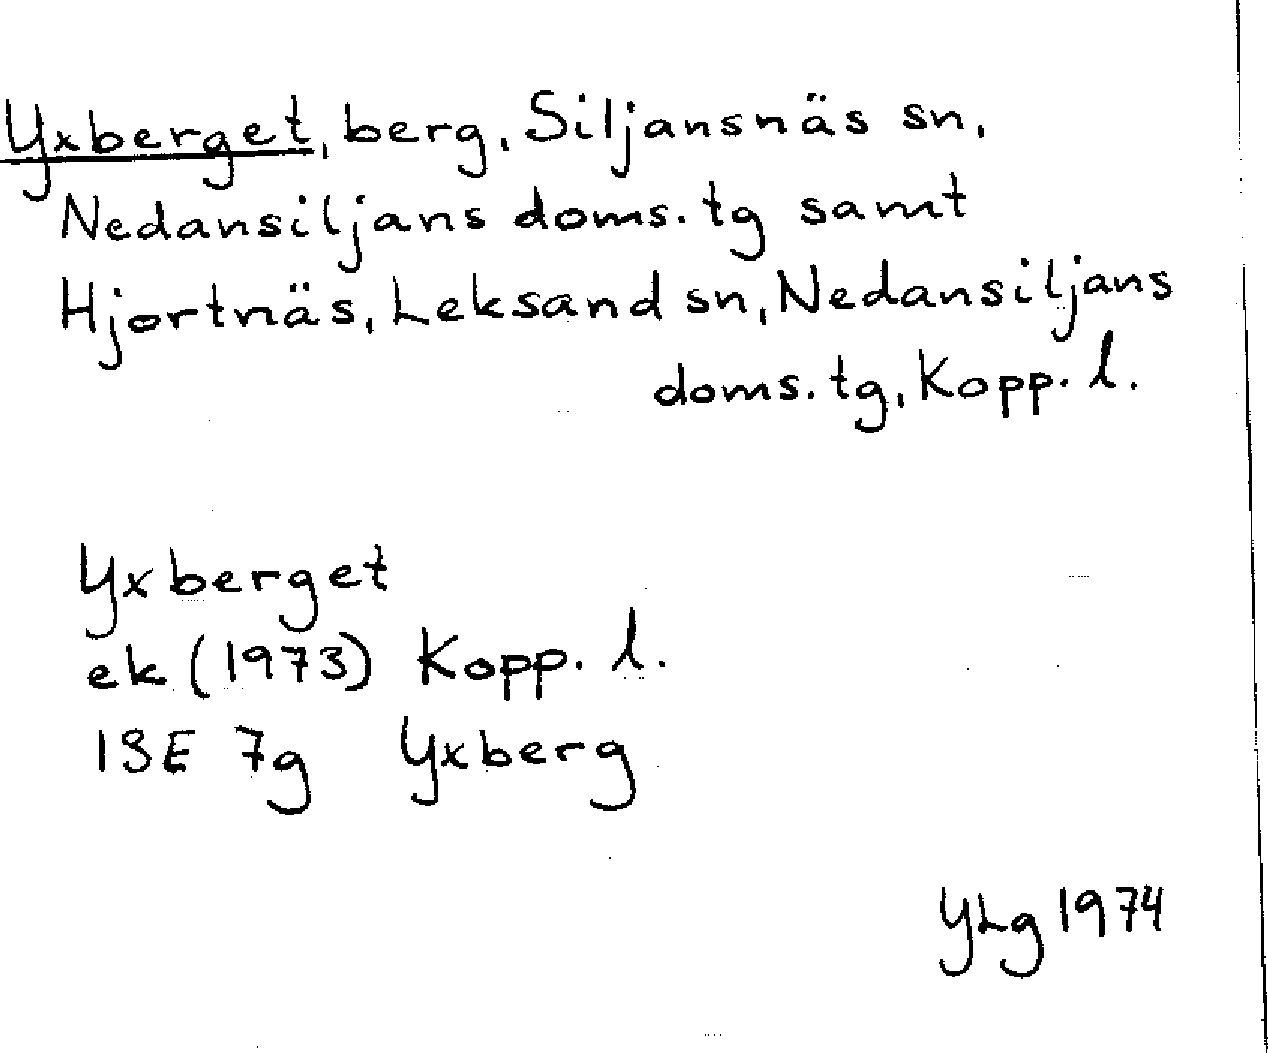 Yxberget, berg, Siljansnäs sn,
Nedansiljans doms. tg samt
Hjortnäs, Leksand sn, Nedansiljans
doms. tg, Kopp. l.
Yxberget
ek (1973) Kopp. l.
13E 7g Yxberg
YLg 1974